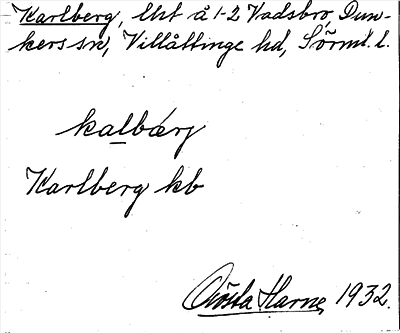 Karlberg, lht å 1-2 Vadsbro, Dun-
kers sn, Villåttinge hd, Sörml. l.
kalbærj
Karlberg kb
Gösta Harne, 1932.